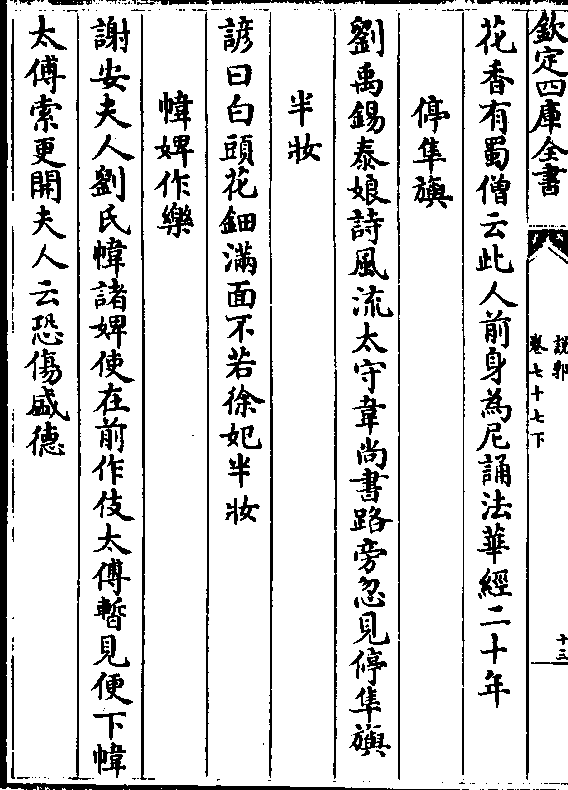 欽定四庫全書
說郛
卷七十七下
十三
花香有蜀僧云此人前身為尼誦法華經二十年
停隼旟
劉禹錫泰娘詩風流太守韋尚書路旁忽見停隼旟
半妝
諺曰白頭花鈿滿面不若徐妃半妝
幃婢作樂
謝安夫人劉氏幃諸婢使在前作伎太傅暫見便下幃
太傅索更開夫人云恐傷盛德